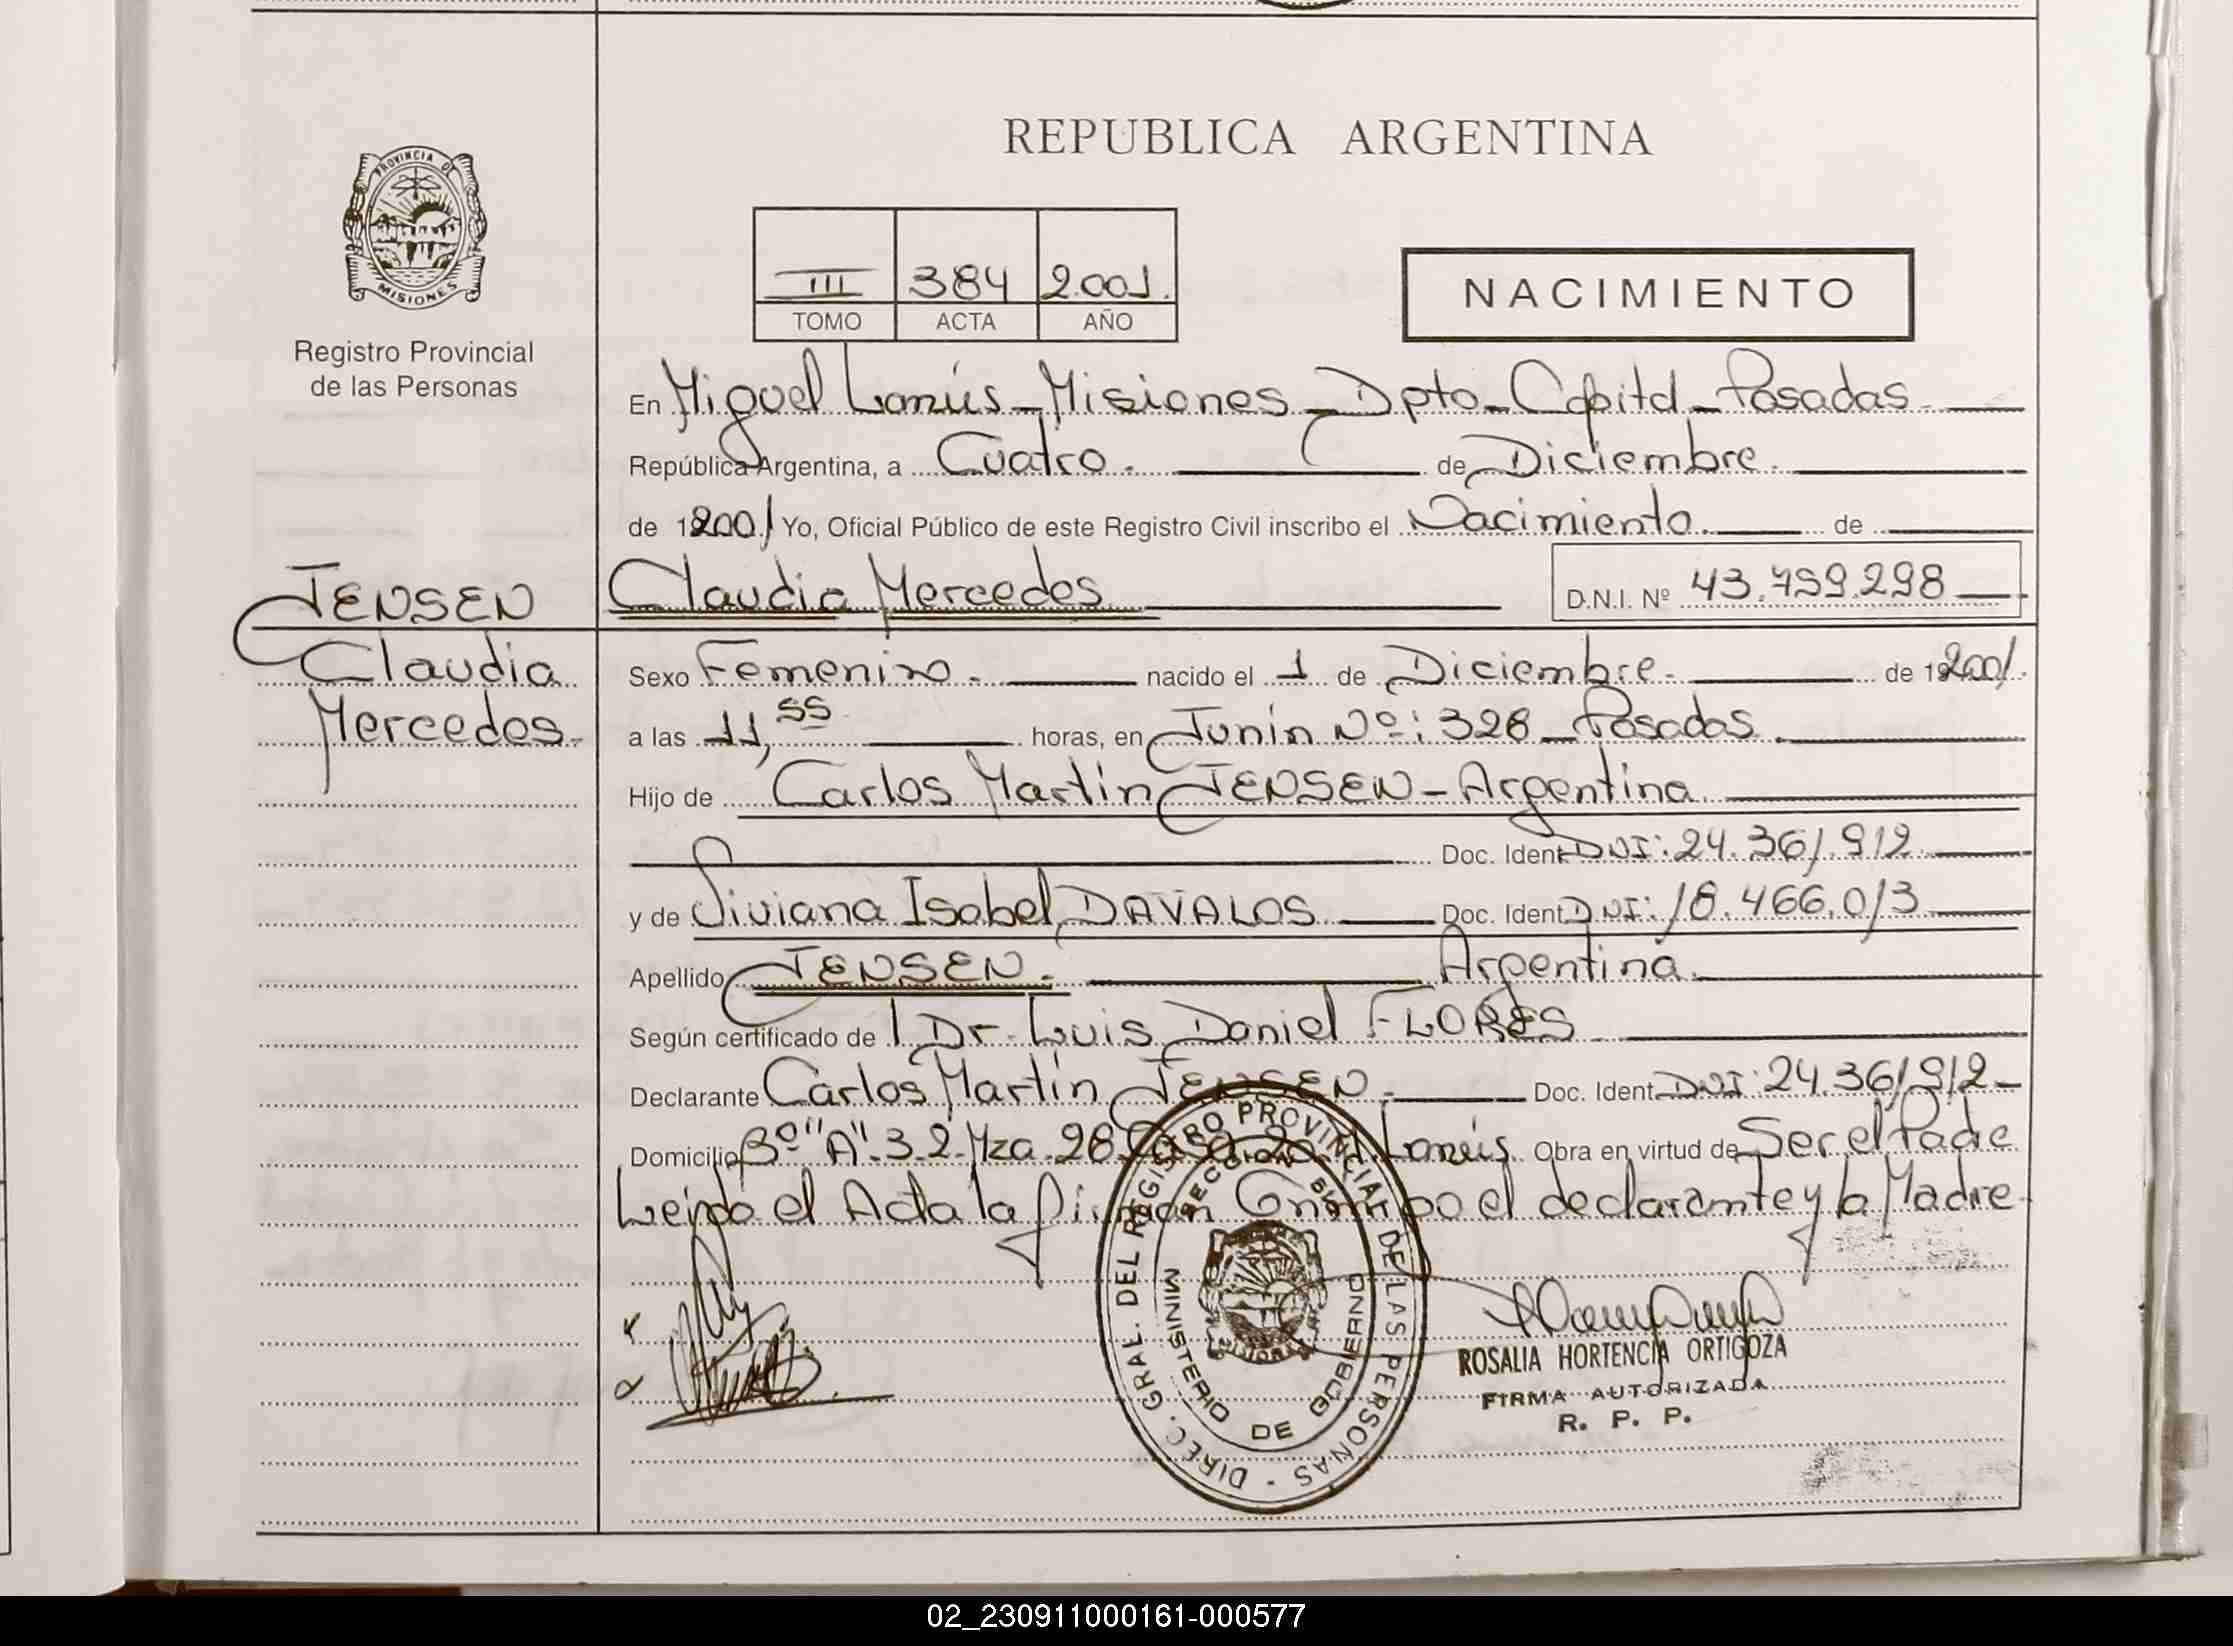 REPUBLICA ARGENTINA
PROVINCIA DE
MISIONES
Registro Provincial
de las Personas
III 384 2.001.
TOMO ACTA AÑO
NACIMIENTO
En Miguel Lanús - Misiones - Dpto - Capital - Posadas
República Argentina, a Cuatro. de Diciembre.
de 12001 Yo, Oficial Público de este Registro Civil inscribo el Nacimiento. de
JENSEN
Claudia
Mercedes
Claudia Mercedes D.N.I. Nº 43.759.298
Sexo Femenino. nacido el 1 de Diciembre. de 192001.
a las 11,55 horas, en Junín Nº: 328 - Posadas.
Hijo de Carlos Martín JENSEN - Argentina.
Doc. Ident. DNI: 24.361.912
y de Viviana Isabel DAVALOS Doc. Ident. DNI: 18.466.013
Apellido JENSEN. Argentina.
Según certificado de l Dr. Luis Daniel FLORES
Declarante Carlos Martín JENSEN. Doc. Ident. DNI: 24.361.912-
Domicilio Bº "A". 3.2. Mza. 28 Casa Lanús. Obra en virtud de Ser el Padre
Leído el Acta la firman Conmigo el declarante y la Madre
DIREC. GRAL. DEL REGISTRO PROVINCIAL DE LAS PERSONAS -
MINISTERIO DE GOBIERNO
MISIONES
ROSALIA HORTENCIA ORTIGOZA
FIRMA AUTORIZADA
R. P. P.
02_230911000161-000577